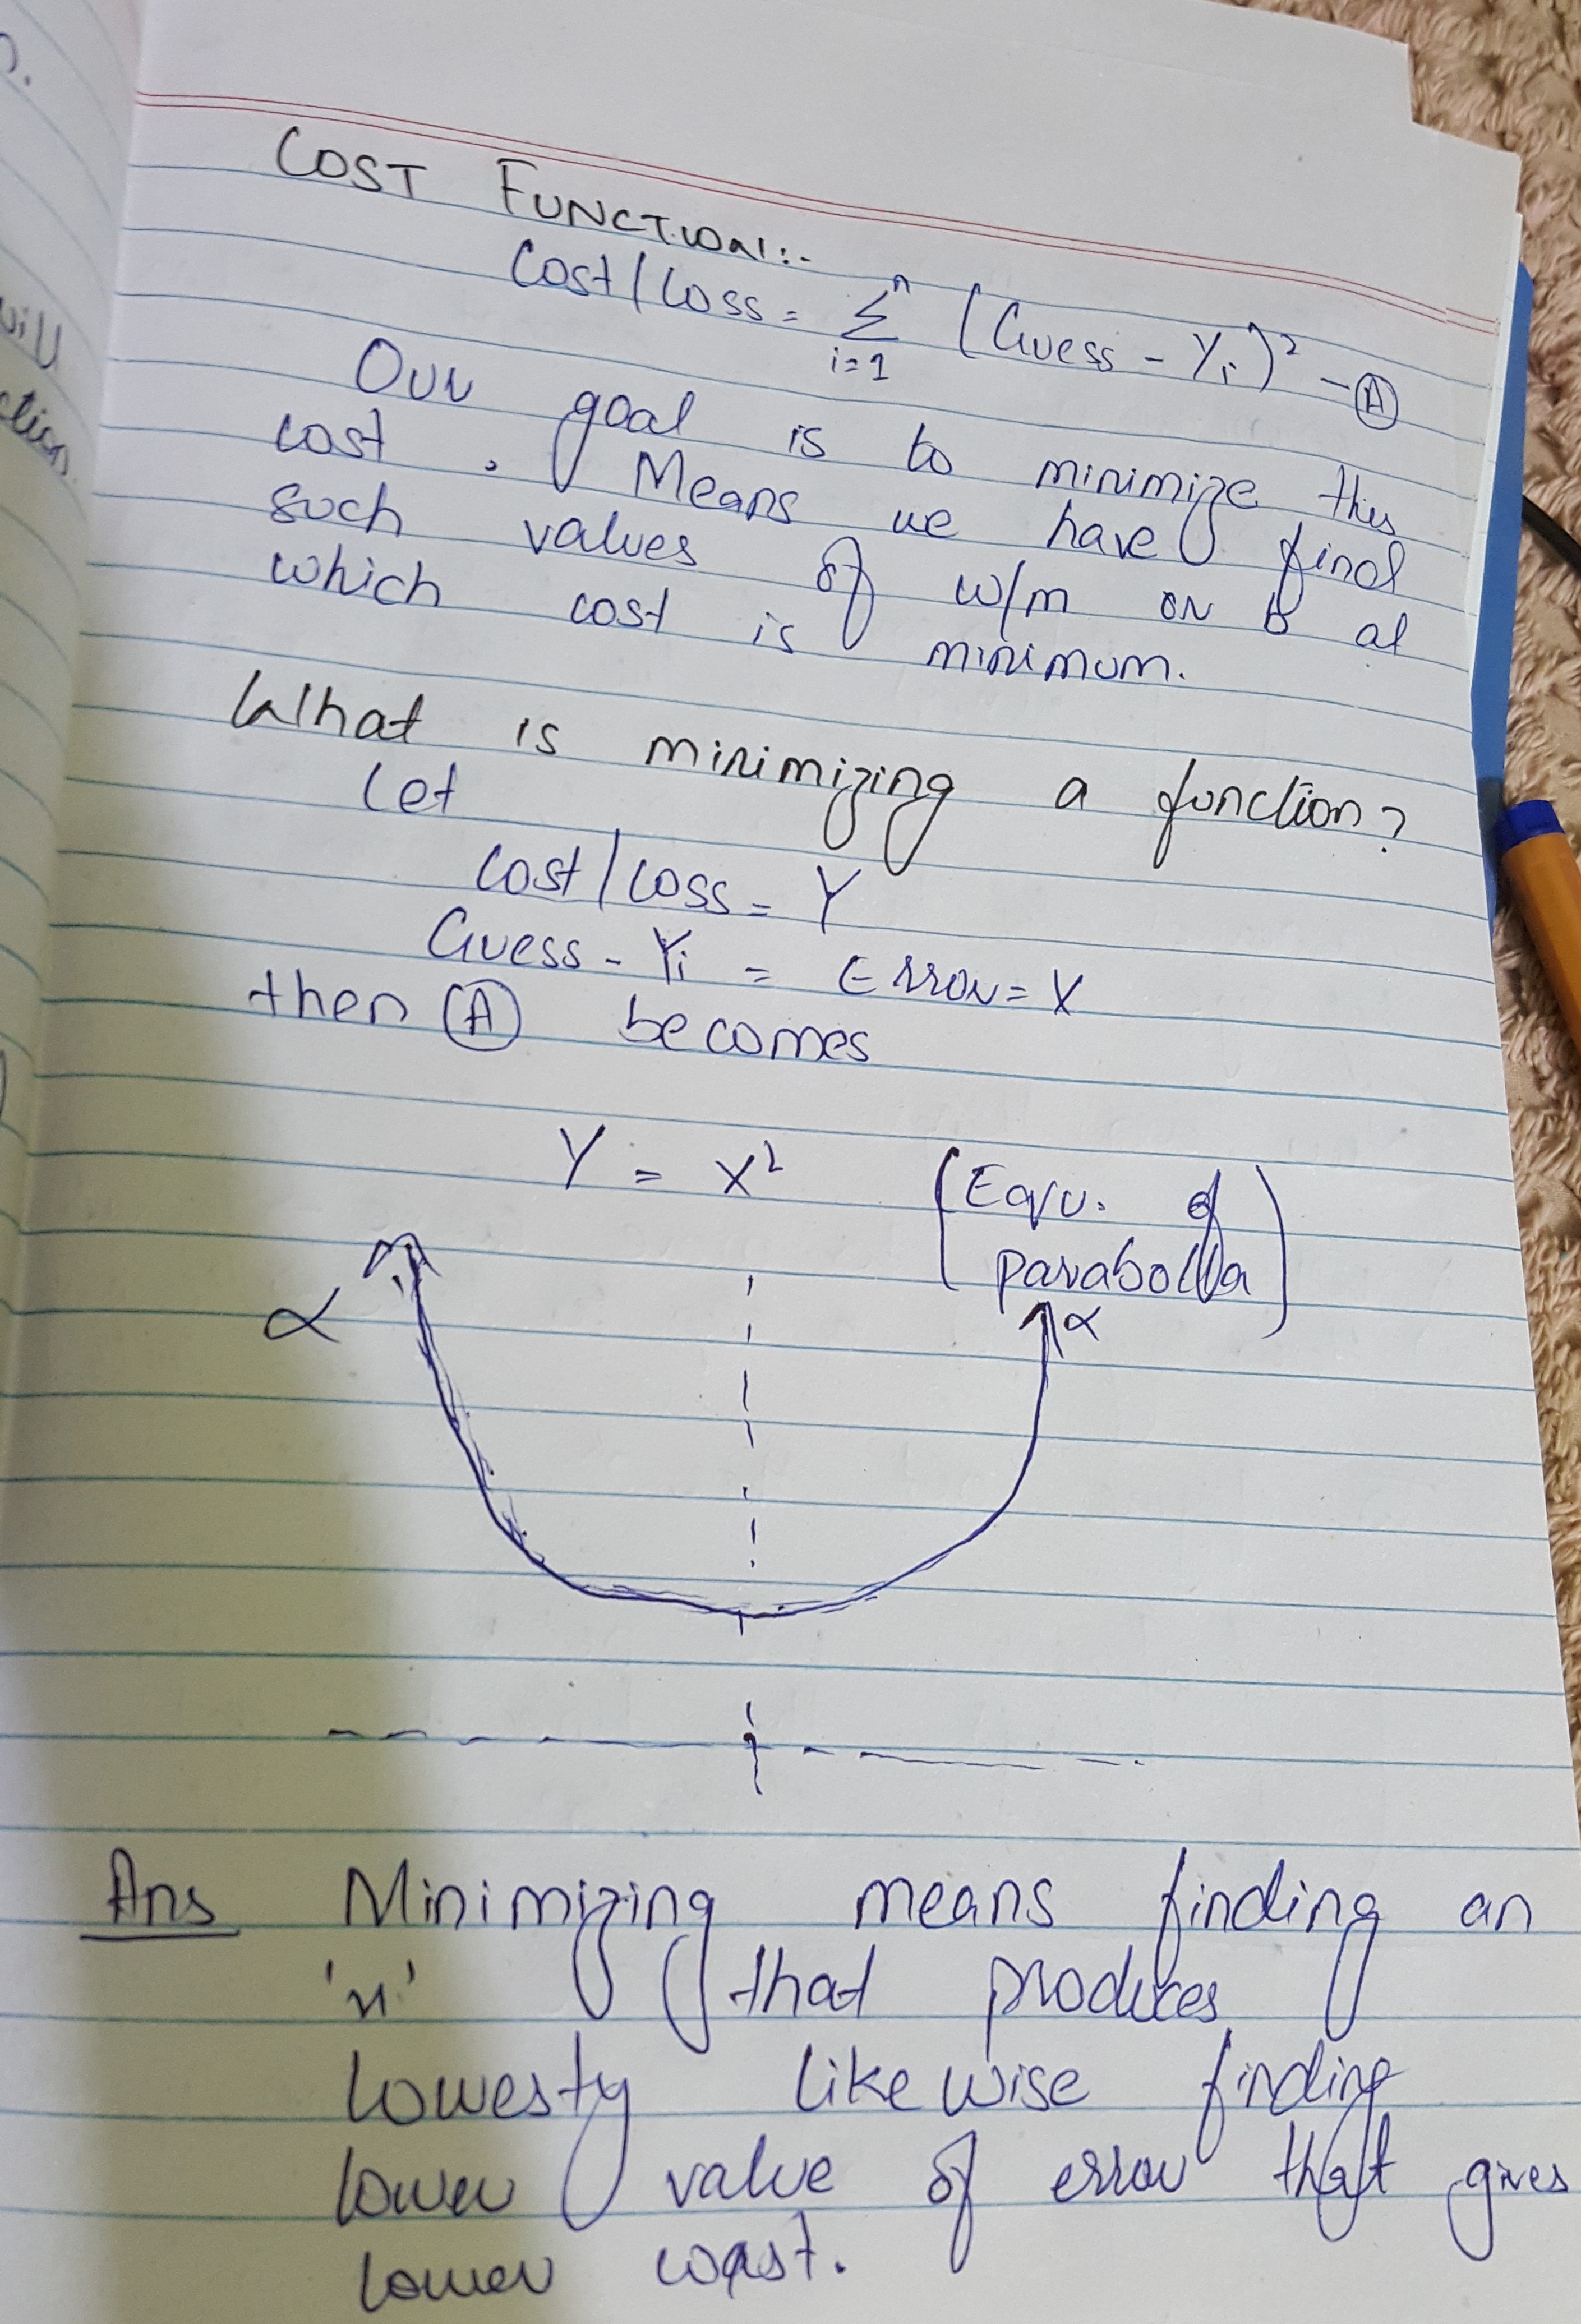 n.
will
ction.
COST FUNCTION:-
Cost/Loss = n∑i=1 (Guess - Yi)² - Ⓐ
Our goal is to minimize this
cost. Means we have find
such values of w/m or b at
which cost is minimum.
What is minimizing a function?
Let
Cost/Loss = Y
Guess - Yi = Error = X
then Ⓐ becomes
Y = X² (Equ. of
parabolla)
α α
Ans Minimizing means finding an
'x' that produces
lowesty likewise finding
lower value of error that gives
lower coast.